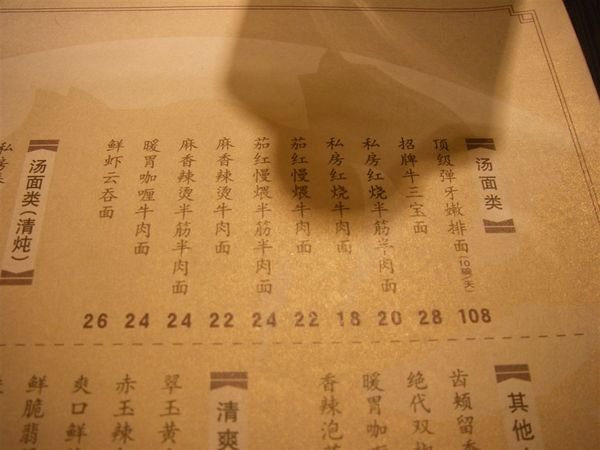 汤面类
顶级弹牙嫩排面(10碗/天) 108
招牌牛三宝面 28
私房红烧半筋半肉面 20
私房红烧牛肉面 18
茄红慢煨牛肉面 22
茄红慢煨半筋半肉面 24
麻香辣烫牛肉面 22
麻香辣烫半筋半肉面 24
暖胃咖喱牛肉面 24
鲜虾云吞面 26
汤面类(清炖)
私房
其他
齿颊留
绝代双
暖胃咖
香辣泡
清爽
翠玉黄
赤玉辣
爽口鲜
鲜脆翡